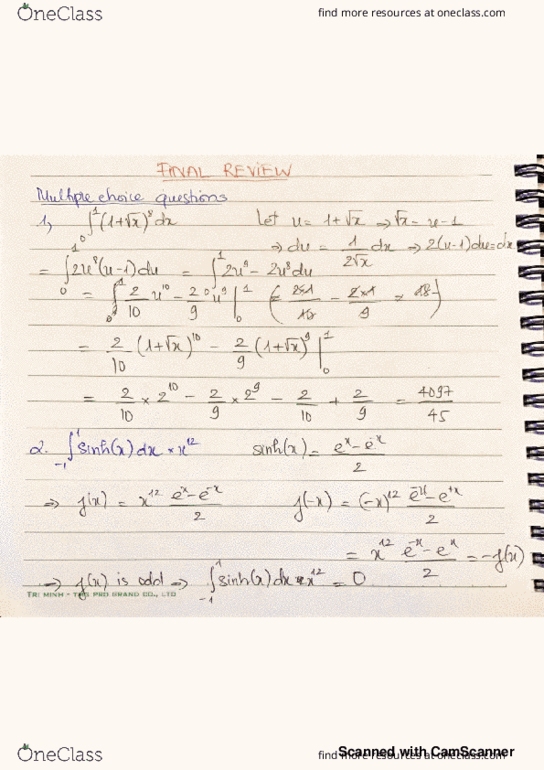 OneClass
find more resources at oneclass.com
FINAL REVIEW
Multiple choice questions
1, ∫₀¹(1+√x)⁸dx Let u = 1+√x ⇒ √x = u-1
⇒ du = 1/(2√x) dx ⇒ 2(u-1)du=dx
= ∫₀¹2u⁸(u-1)du = ∫¹2u⁹ - 2u⁸du
= 2/10 u¹⁰ - 2/9 u⁹ |₀¹
= 2/10 (1+√x)¹⁰ - 2/9 (1+√x)⁹ |₀¹
= 2/10 × 2¹⁰ - 2/9 × 2⁹ - 2/10 + 2/9 = 4097/45
2. ∫₋₁¹sinh(x)dx × x¹² sinh(x) = (eˣ - e⁻ˣ)/2
⇒ f(x) = x¹² (eˣ - e⁻ˣ)/2 f(-x) = (-x)¹² (e⁻ˣ - e⁺ˣ)/2
= x¹² (e⁻ˣ - eˣ)/2 = -f(x)
⇒ f(x) is odd ⇒ ∫₋₁¹sinh(x)dx × x¹² = 0
TRI MINH - THE PRO BRAND CO., LTD
OneClass
find more resources at oneclass.com
Scanned with CamScanner